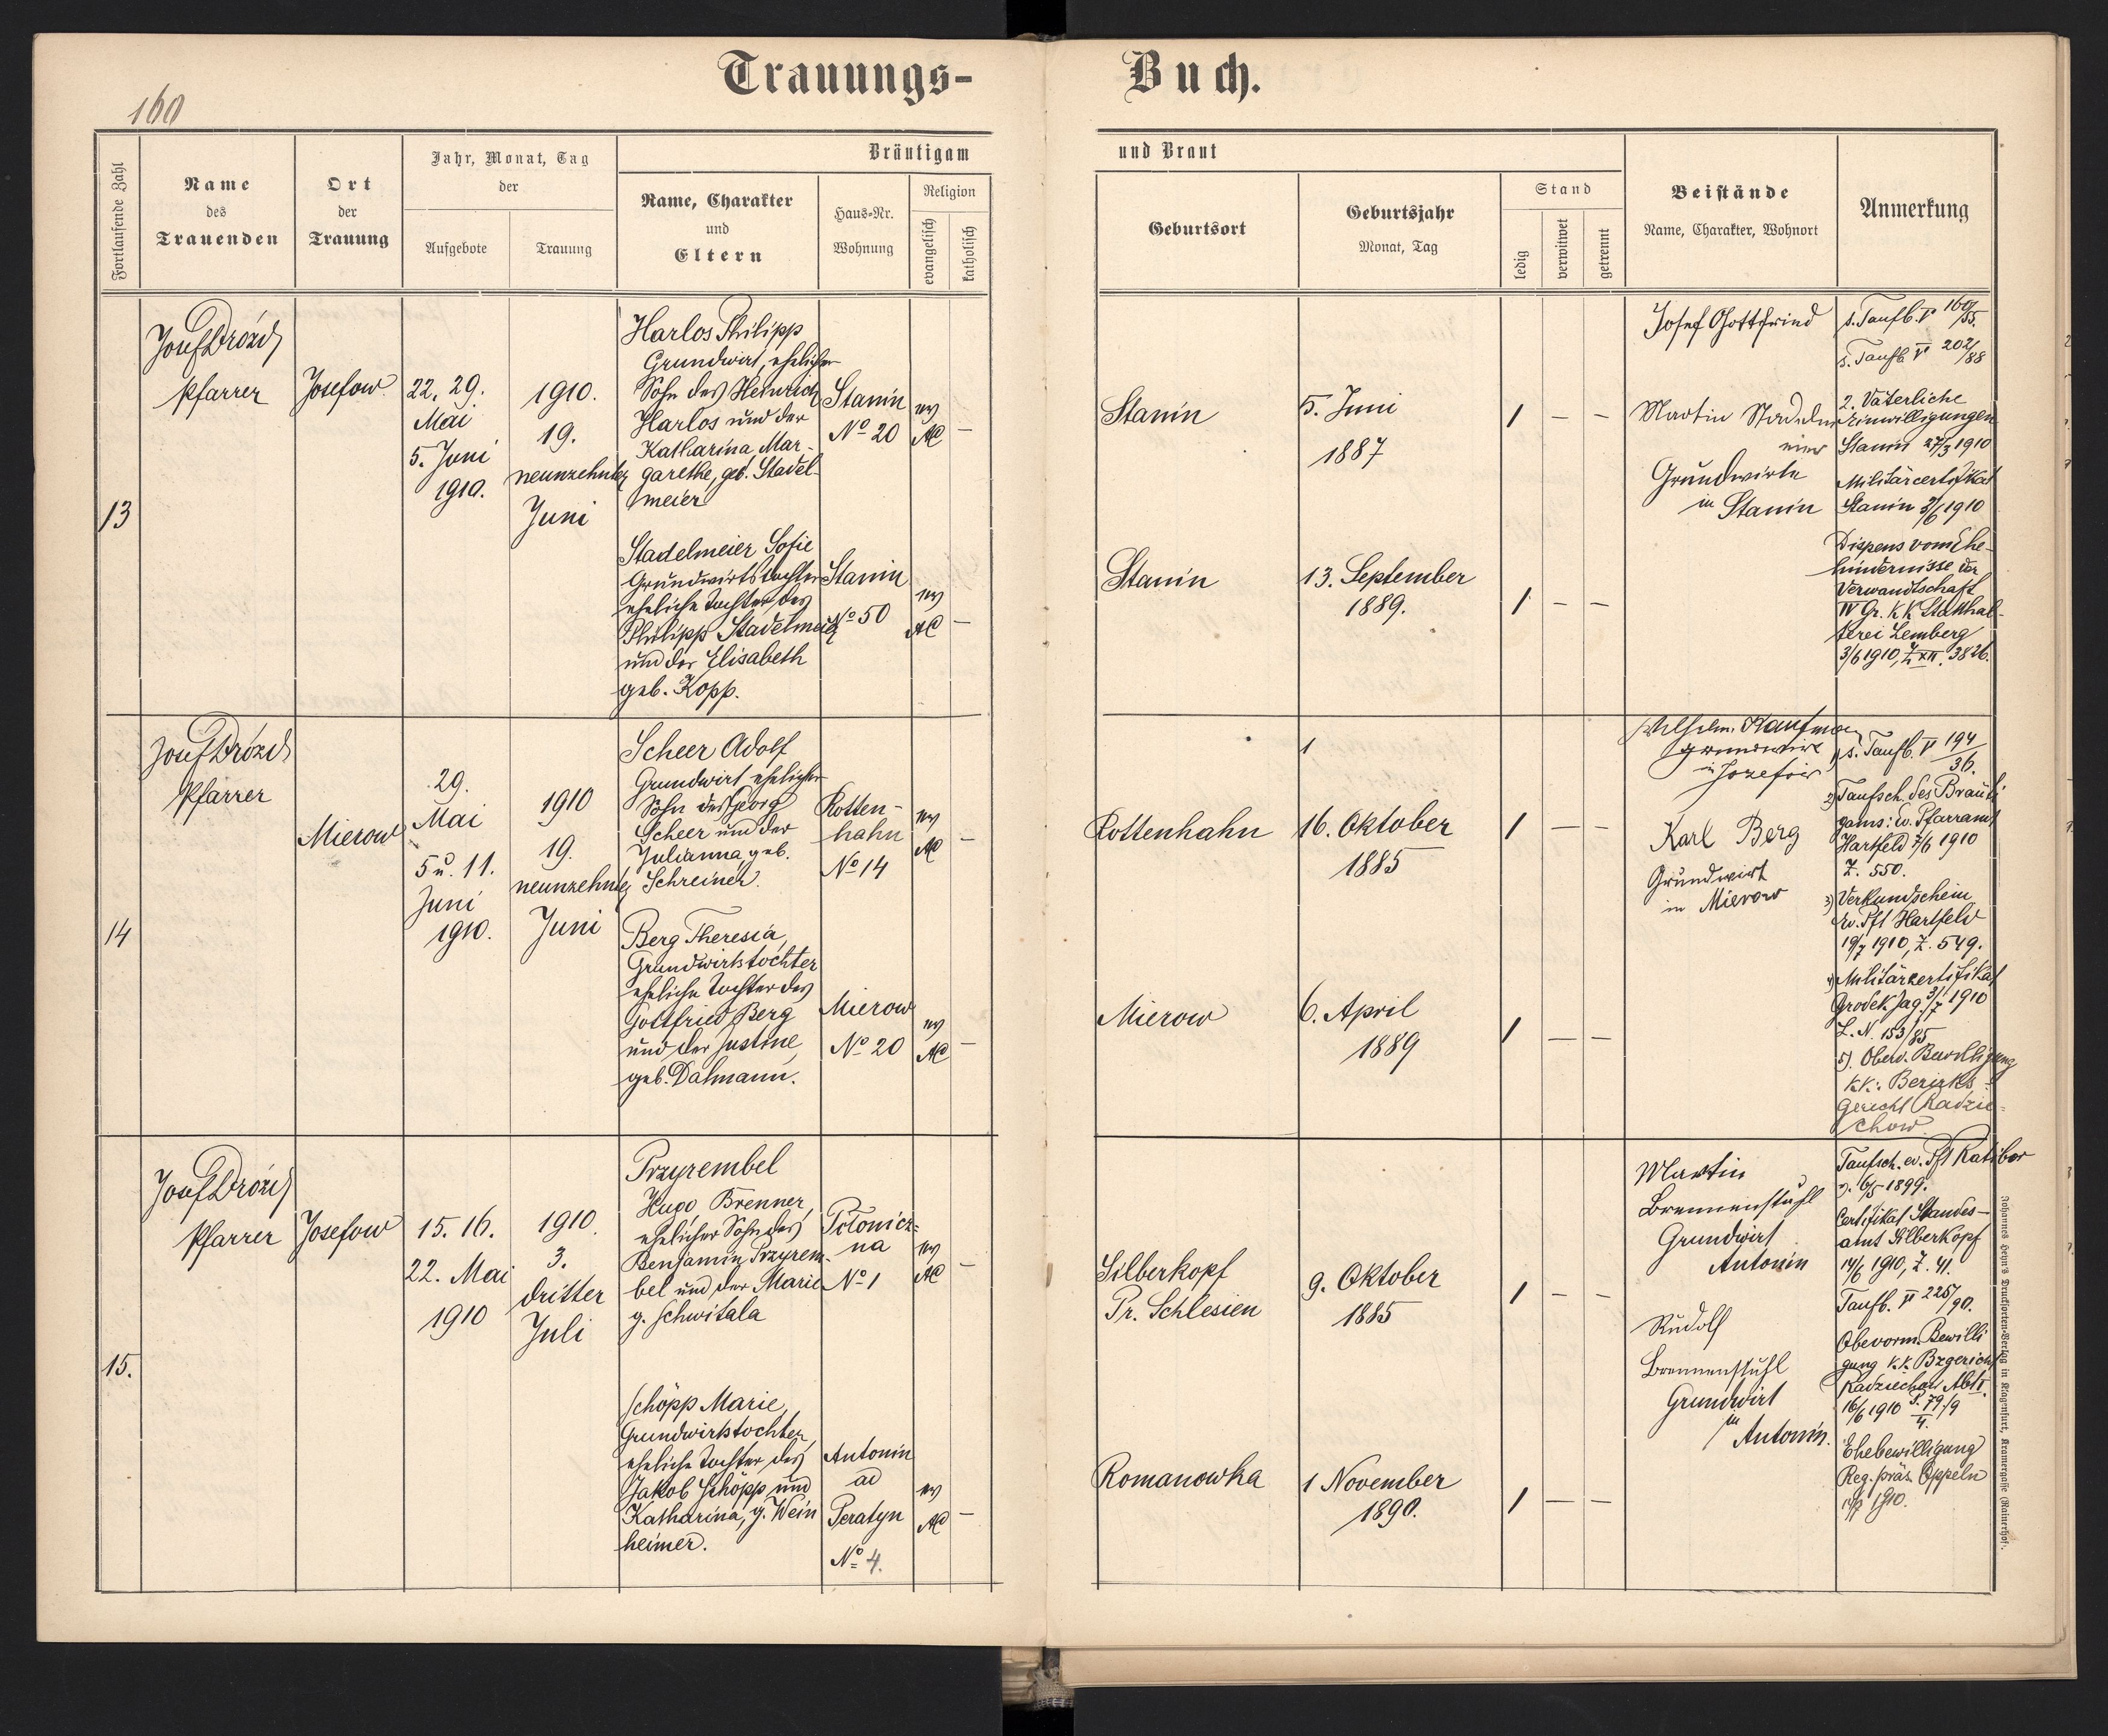 160
Trauungs-
Buch.
Fortlaufende Zahl
Name
des
Trauenden
Ort
der
Trauung
Jahr, Monat, Tag
der
Aufgebote
Trauung
Bräutigam
Name, Charakter
und
Eltern
Haus-Nr.
Wohnung
Religion
evangelisch
katholisch
und Braut
Geburtsort
Geburtsjahr
Monat, Tag
Stand
ledig
verwitwet
getrennt
Beistände
Name, Charakter, Wohnort
Anmerkung
13
Josef Drozd
Pfarrer
Josefow
22. 29.
Mai
5. Juni
1910.
1910.
19.
neunzehnter
Juni
Harlos Philipp
Grundwirt, ehelicher
Sohn des Heinrich
Harlos und der
Katharina Mar-
garethe, geb. Stadel-
meier
Stanin
No 20
ev
AC
–
Stadelmeier Sofie
Grundwirtstochter
eheliche Tochter des
Philipp Stadelmeier
und der Elisabeth
geb. Kopp.
Stanin
No 50
ev
AC
–
Stanin
5. Juni
1887
1 – –
Stanin
13. September
1889.
1 – –
Josef Gottfried
Martin
Grundwirte
in Stanin
s. Taufb. V 160/55.
s. Taufb. V 202/88
2. Väterliche
Einwilligungen
Stanin 27/3 1910
Militärcertifikat
Stanin 3/6 1910
Dispens vom Ehe-
hindernisse der
Verwandtschaft
IV Gr. k.k. Statthal-
terei Lemberg
3/6 1910, Z. XII. 3826.
14
Josef Drozd
Pfarrer
Mierow
29.
Mai
5 u. 11.
Juni
1910.
1910
19.
neunzehnter
Juni
Scheer Adolf
Grundwirt ehelicher
Sohn des Georg
Scheer und der
Julianna, geb.
Schreiner.
Rotten-
hahn
No 14
ev
AC
–
Berg Theresia,
Grundwirtstochter
eheliche Tochter des
Gottfried Berg
und der Justine,
geb. Dalmann.
Mierow
No 20
ev
AC
–
Rottenhahn
16. Oktober
1885
1 – –
Mierow
6. April
1889
1 – –
Wilhelm Kaufman
Grundwirt
in Jozefow
Karl Berg
Grundwirt
in Mierow
1) s. Taufb. V 194/36.
2) Taufsch. des Bräuti
gams: ev. Pfarramt
Hartfeld 7/6 1910
Z. 550.
3) Verkundschein
Ev. Pft Hartfeld
19/7 1910, Z. 549.
4) Militärzertifikat
Grodek Jag. 3/7 1910
L. N. 153/85
5). Oberv. Bewilligung
k.k. Bezirks-
gericht Radzie-
chow
15.
Josef Drozd
Pfarrer
Josefow
15. 16.
22. Mai
1910
1910.
3.
dritter
Juli
Przyrembel
Hugo, Brenner,
ehelicher Sohn des
Benjamin Przyrem-
bel und der Marie
g. Schwitala
Polonicz-
na
No 1
ev
AC
–
Schöpp Marie,
Grundwirtstochter,
eheliche Tochter des
Jakob Schöpp und
Katharina, g. Wein
heimer.
Antonin
ad
Peratyn
No 4.
ev
AC
–
Silberkopf
Pr. Schlesien
9. Oktober
1885
1 – –
Romanowka
1 November
1890.
1 – –
Martin
Brennenstuhl
Grundwirt
Antonin
Rudolf
Brennenstuhl
Grundwirt
in
Antonin.
Taufsch. ev. Pft Ratibor
6/5 1899.
Certifikat Standes-
amt Silberkopf
14/6 1910, Z. 41.
Taufb. V 225/90.
Obervorm. Bewilli
gung k.k. Bzgericht
Radziechow Abt I.
16/6 1910
Ehebewilligung
Reg. präs. Oppeln
1910.
Johannes Heyn's Drucksorten-Verlag in Klagenfurt, Kramergasse (Rainerhof).